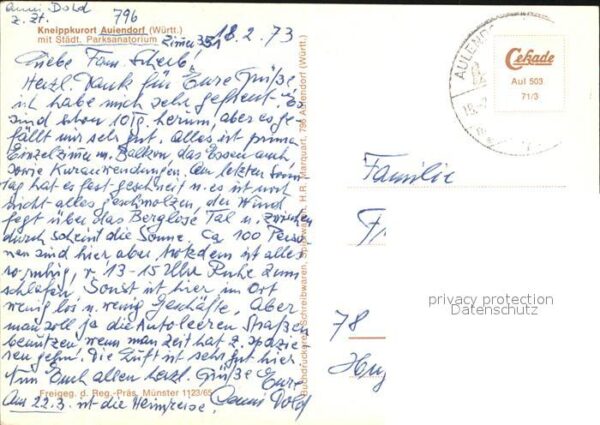 Anni Dold
z. Zt. 796
Kneippkurort Aulendorf (Württ.)
mit Städt. Parksanatorium
Zimm 351 18.2.73
Liebe Fam. Scherb!
Herzl. Dank für Eure Grüße
ich habe mich sehr gefreut. Es
sind schon 10 Tg. herum, aber es ge-
fällt mir sehr gut. Alles ist prima
Einzelzimm m. Balkon, das Essen auch,
sowie Kuranwendungen. Am letzten Sonn
tag hat es fest geschneit u. es ist noch
nicht alles geschmolzen, der Wind
fegt über das Berglose Tal u. zwischen
durch scheint die Sonne. Ca 100 Perso
nen sind hier aber trotzdem ist alles
so ruhig, v. 13-15 Uhr Ruhe zum
schlafen. Sonst ist hier im Ort
wenig los u. wenig Geschäfte, Aber
man soll ja die Autoleeren Straßen
benützen wenn man Zeit hat z. spazie
ren gehn! Die Luft ist sehr gut hier
Nun Euch allen herzl. Grüße Eure
Anni Dold
Am 22.3. ist die Heimreise,
Freigeg. d. Reg.-Präs. Münster 1123/65
Buchdruckerei, Schreibwaren, Spielwaren, H.R. Marquart, 796 Aulendorf (Württ.)
AULENDORF
Cekade
Aul 503
71/3
Familie
Fr
78
privacy protection
Datenschutz